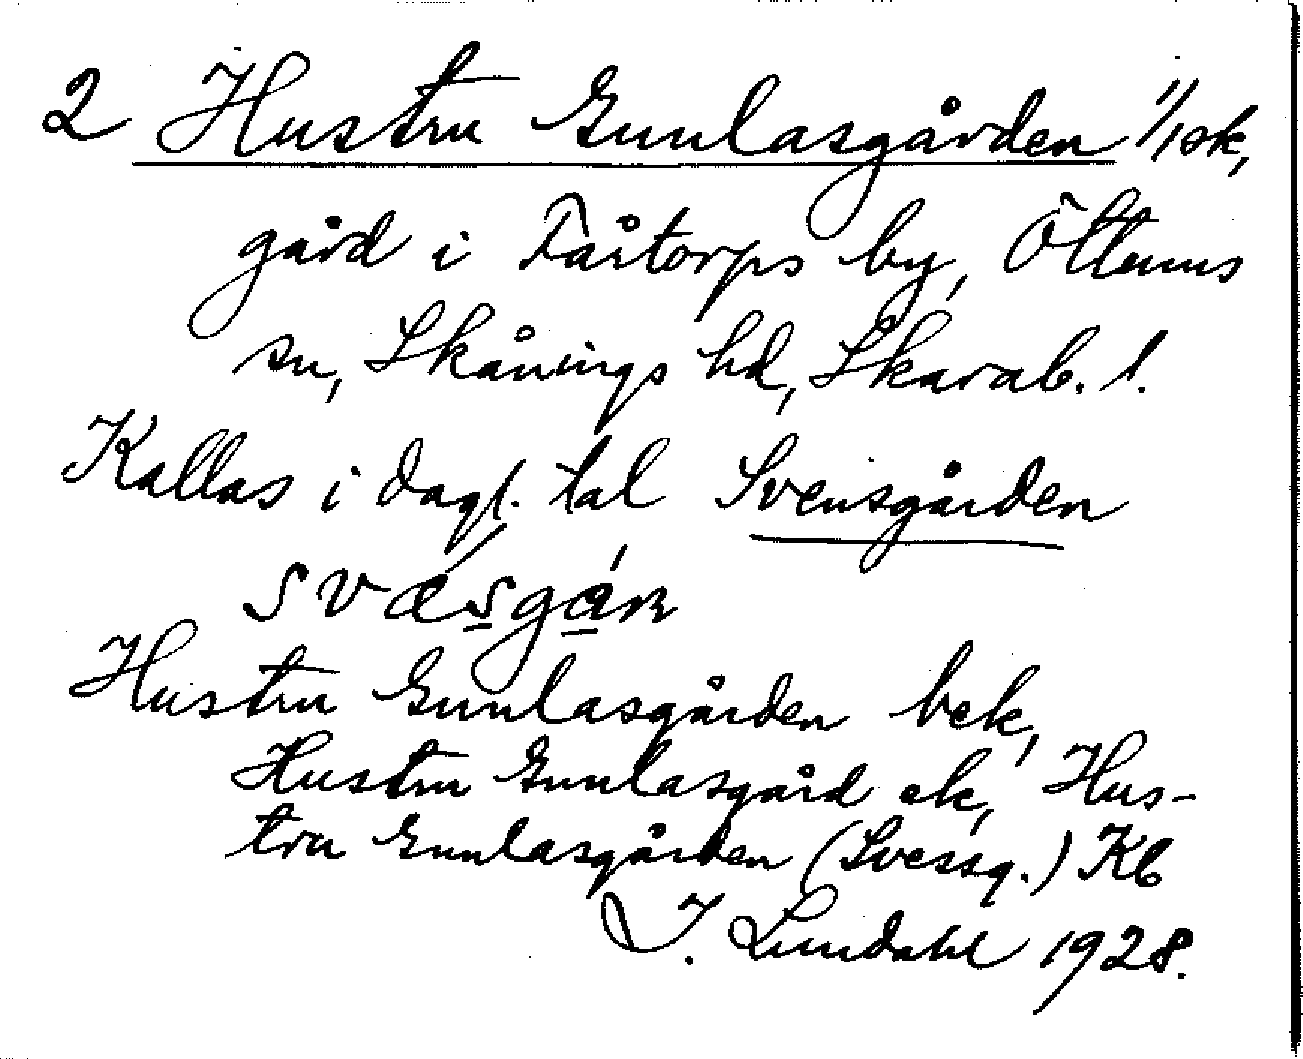 2 Hustru Gunlasgården 1/1 sk,
gård i Fåtorps by, Öttums
sn, Skånings hd, Skarab. l.
Kallas i dagl. tal Svensgården
svæsgán
Hustru Gunlasgården bek,
Hustru Gunlasgård ek, Hus-
tru Gunlasgården (Svessg.) Kb
I. Lundahl 1928.